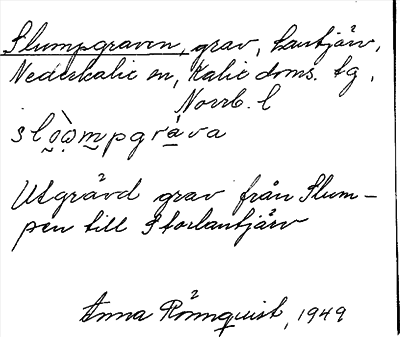 Slumpgraven, grav, Lantjärv,
Nederkalix sn, Kalix doms. tg,
Norrb. l
slo̯o̯m̯pgrá̱va
Utgrävd grav från Slum-
pen till Storlantjärv
Anna Rönnquist, 1949